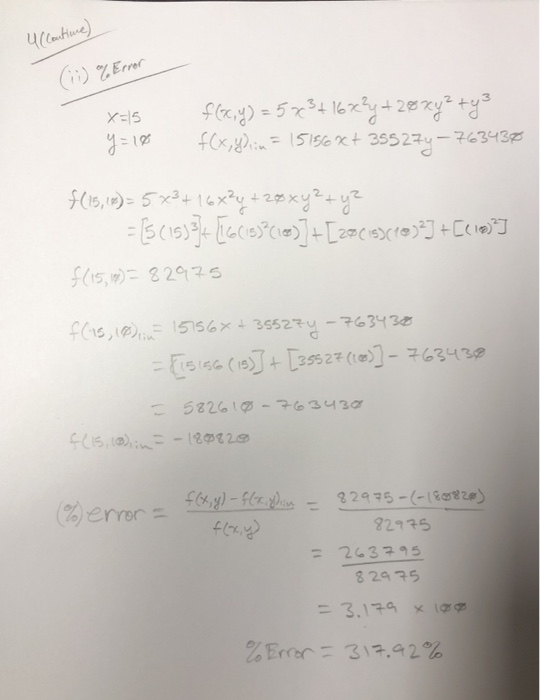 4(Continue)
(ii) % Error
x=15 f(x,y) = 5x³+16x²y+20xy²+y³
y=10 f(x,y)lin = 15156x+35527y-763430
f(15,10) = 5x³+16x²y+20xy²+y²
= [5(15)³]+[16(15)²(10)]+[20(15)(10)²]+[(10)²]
f(15,10) = 82975
f(15,10)lin = 15156x + 35527y - 763430
= [15156(15)] + [35527(10)] - 763430
= 582610 - 763430
f(15,10)lin = -180820
(%) error = f(x,y)-f(x,y)lin / f(x,y) = 82975-(-180820) / 82975
= 263795 / 82975
= 3.179 × 100
% Error = 317.92%